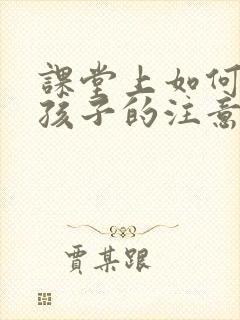 課堂上如何
孩子的注意
賈某跟